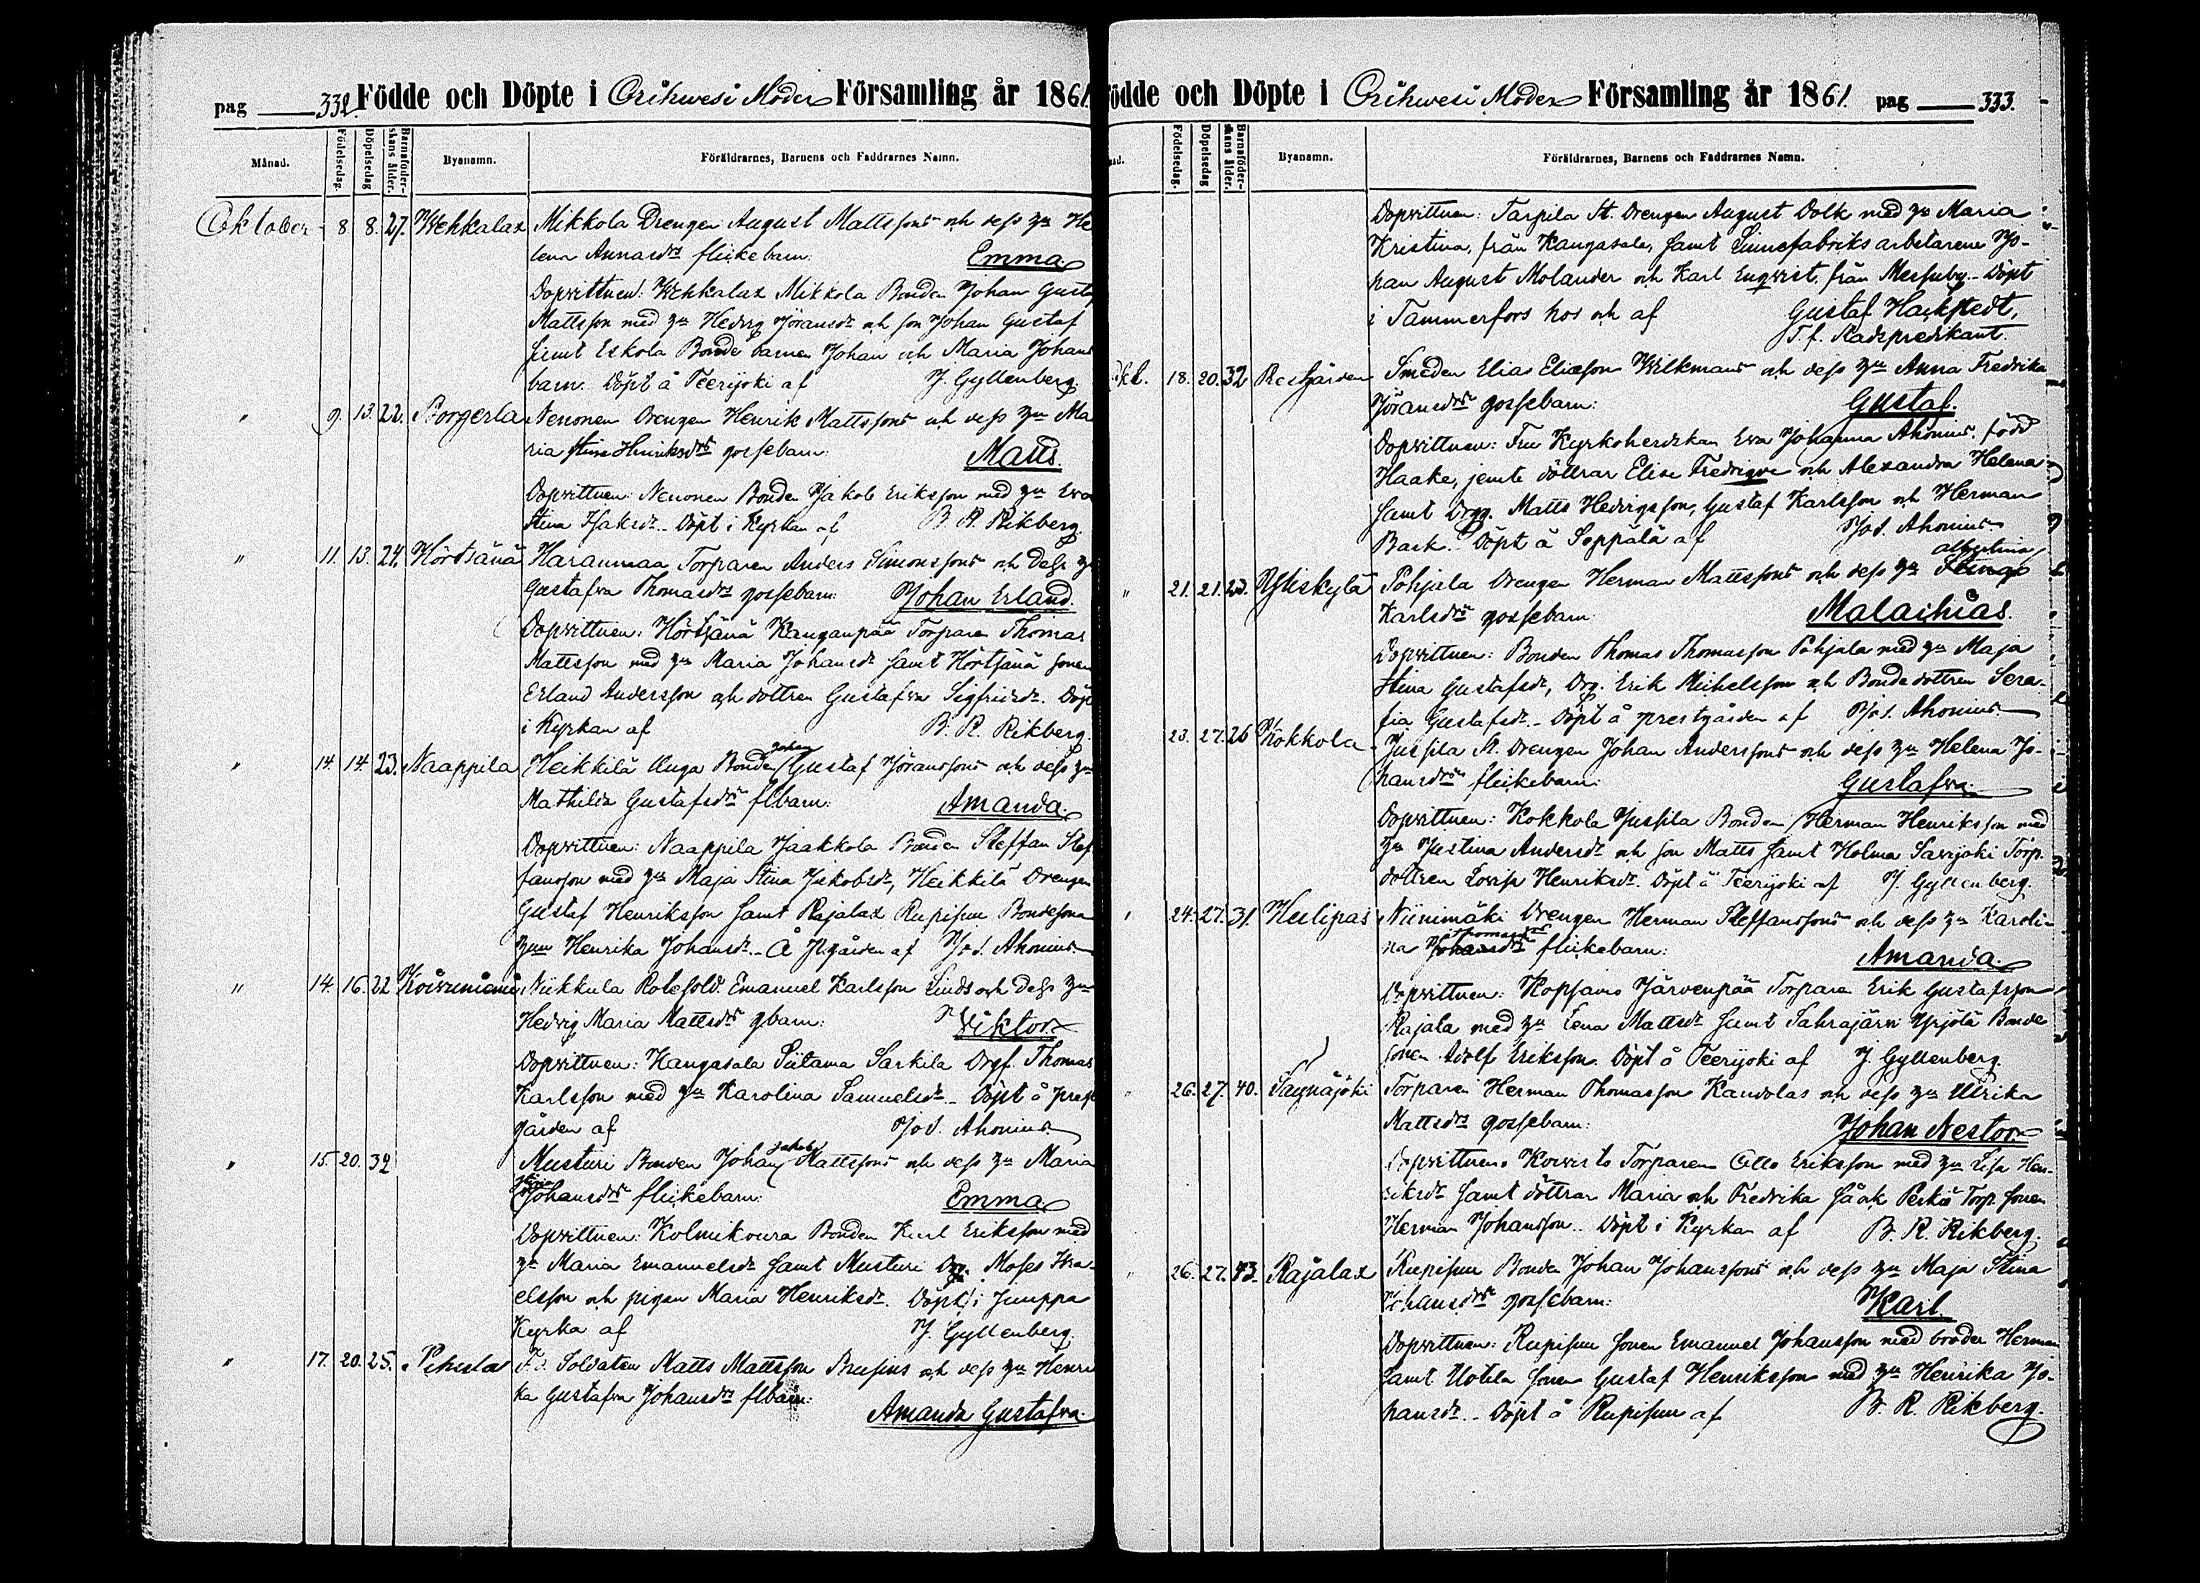 pag 332. Födde och Döpte i Orihwesi Moder Församling år 1861.
Månad. Födelsedag. Döpelsedag Barnaföderskans ålder. Byanamn. Föräldrarnes, Barnens och Faddrarnes Namn.
Oktober 8 8. 27. Wehkalax Mikkola Drengen August Mattssons och dess h:u He
lena Annasdrs flickebarn: Emma
Dopvittnen: Wehkalax Mikkola Bonden Johan Gustaf
Mattsson med h:u Hedvig Jöransdr och son Johan Gustaf
samt Eskola Bonde barnen Johan och Maria Johans
barn. Döpt å Teerijoki af J. Gyllenberg.
" 9. 13. 22. Storgerla Nenonen Drengen Henrik Mattssons och dess h:u Ma
ria Stina Henriksdrs gossebarn: Matts.
Dopvittnen: Nenonen Bonden Jakob Eriksson med h:u Eva
Stina Isaksdr. Döpt i Kyrkan af B. R. Rikberg.
" 11. 13. 24. Hörtsänä Haranmaa Torparen Anders Simonssons och dess h:u
Gustafva Thomasdrs gossebarn: Johan Erland.
Dopvittnen: Hörtsänä Kanganpää Torparen Thomas
Mattsson med h:u Maria Johansdr samt Hörtsänä sonen
Erland Andersson och dottren Gustafva Sigfridsdr. Döpt
i Kyrkan af B. R. Rikberg.
" 14. 14. 23. Naappila Heikkilä Unga Bonden Johan Gustaf Jöranssons och dess h:u
Mathilda Gustafsdrs flbarn: Amanda.
Dopvittnen: Naappila Jaakkola Bonden Steffan Stef
fansson med h:u Maja Stina Jakobsdr, Heikkilä Drengen
Gustaf Henriksson samt Rajalax Rupisuu Bondesona
h:un Henrika Johansdr. Å Pgården af Jos. Ahonius
" 14. 16. 22 Koivuniemi Nikkula Rotesold. Emanuel Karlsson Linds och dess h:u
Hedvig Maria Mattsdrs gbarn: Viktor
Dopvittnen: Kangasala Siitama Sarkila Drgf. Thomas
Karlsson med h:u Karolina Samuelsdr. Döpt å prest
gården af Jos. Ahonius
" 15. 20. 32 Musturi Bonden Johan Jakob Mattssons och dess h:u Maria
Stina Johansdrs flickebarn: Emma
Dopvittnen: Kolmikoura Bonden Karl Eriksson med
h:u Maria Emanuelsdr samt Musturi Drg. Moses Isra-
elsson och pigan Maria Henriksdr. Döpt i Juuppa
Kyrka af J. Gyllenberg.
" 17. 20. 25. Pehula F.d. Soldaten Matts Mattsson Brusius och dess h:u Henri
ka Gustafva Johansdrs flbarn:
Amanda Gustafva
Födde och Döpte i Orihwesi Moder Församling år 1861. pag 333.
Födelsedag. Döpelsedag Barnaföderskans ålder. Byanamn. Föräldrarnes, Barnens och Faddrarnes Namn.
Dopvittnen: Tarpila St. Drengen August Dolk med h:u Maria
Kristina, från Kangasala, samt Linnefabriks arbetarene Jo-
han August Molander och Karl Enqvist från Messuby. Döpt
i Tammerfors hos och af Gustaf Hackstedt,
T.f. Kadspredikant.
Okt. 18. 20. 32 Restgården Smeden Elias Eliæson Wilkmans och dess h:u Anna Fredrika
Jöransdrs gossebarn: Gustaf.
Dopvittnen: Fru Kyrkoherdskan Eva Johanna Ahonius född
Haake, jemte döttrar Elise Fredrique och Alexandra Helena
samt Drgg. Matts Hedvigsson, Gustaf Karlsson och Herman
Bask. Döpt å Seppälä af Jos. Ahonius
" 21. 21. 23. Yliskylä Pohjala Drengen Herman Mattssons och dess h:u Stina albertina
Karlsdrs gossebarn: Malachias.
Dopvittnen: Bonden Thomas Thomasson Pohjala med h:u Maja
Stina Gustafsdr, Drg. Erik Michelsson och Bondedottren Sera-
fia Gustafsdr. Döpt å prestgården af Jos. Ahonius
23. 27. 26 Kokkola Jussila St. Drengen Johan Anderssons och dess h:u Helena Jo-
hansdrs flickebarn: Gustafva
Dopvittnen: Kokkola Jussila Bonden Herman Henriksson med
h:u Justina Andersdr och son Matts samt Holma Savijoki Torp.
dottren Lovisa Henriksdr. Döpt å Teerijoki af J. Gyllenberg.
" 24. 27. 31. Heilipas Niinimäki Drengen Herman Steffanssons och dess h:u Karoli-
na Johansdrs Thomasdrs flickebarn: Amanda.
Dopvittnen: Kopsamo Järvenpää Torparen Erik Gustafsson
Rajala med h:u Lena Mattsdr samt Sahrajärvi Yrjölä Bonde
sonen Adolf Eriksson. Döpt å Teerijoki af J. Gyllenberg.
" 26. 27. 40. Säynäjoki Torparen Herman Thomasson Kandolas och dess h:u Ulrika
Mattsdrs gossebarn: Johan Nestor
Dopvittnen: Koivisto Torparen Otto Eriksson med h:u Lisa Hen-
riksdr samt döttrar Maria och Fredrika Torp. sonen
Herman Johansson. Döpt i Kyrkan af B. R. Rikberg.
" 26. 27. 43. Rajalax Rupisuu Bonden Johan Johanssons och dess h:u Maja Stina
Johansdrs gossebarn: Karl
Dopvittnen: Rupisuu sonen Emanuel Johansson med broder Herman
samt Uotila sonen Gustaf Henriksson med h:u Henrika Jo-
hansdr. Döpt å Rupisuu af B. R. Rikberg.